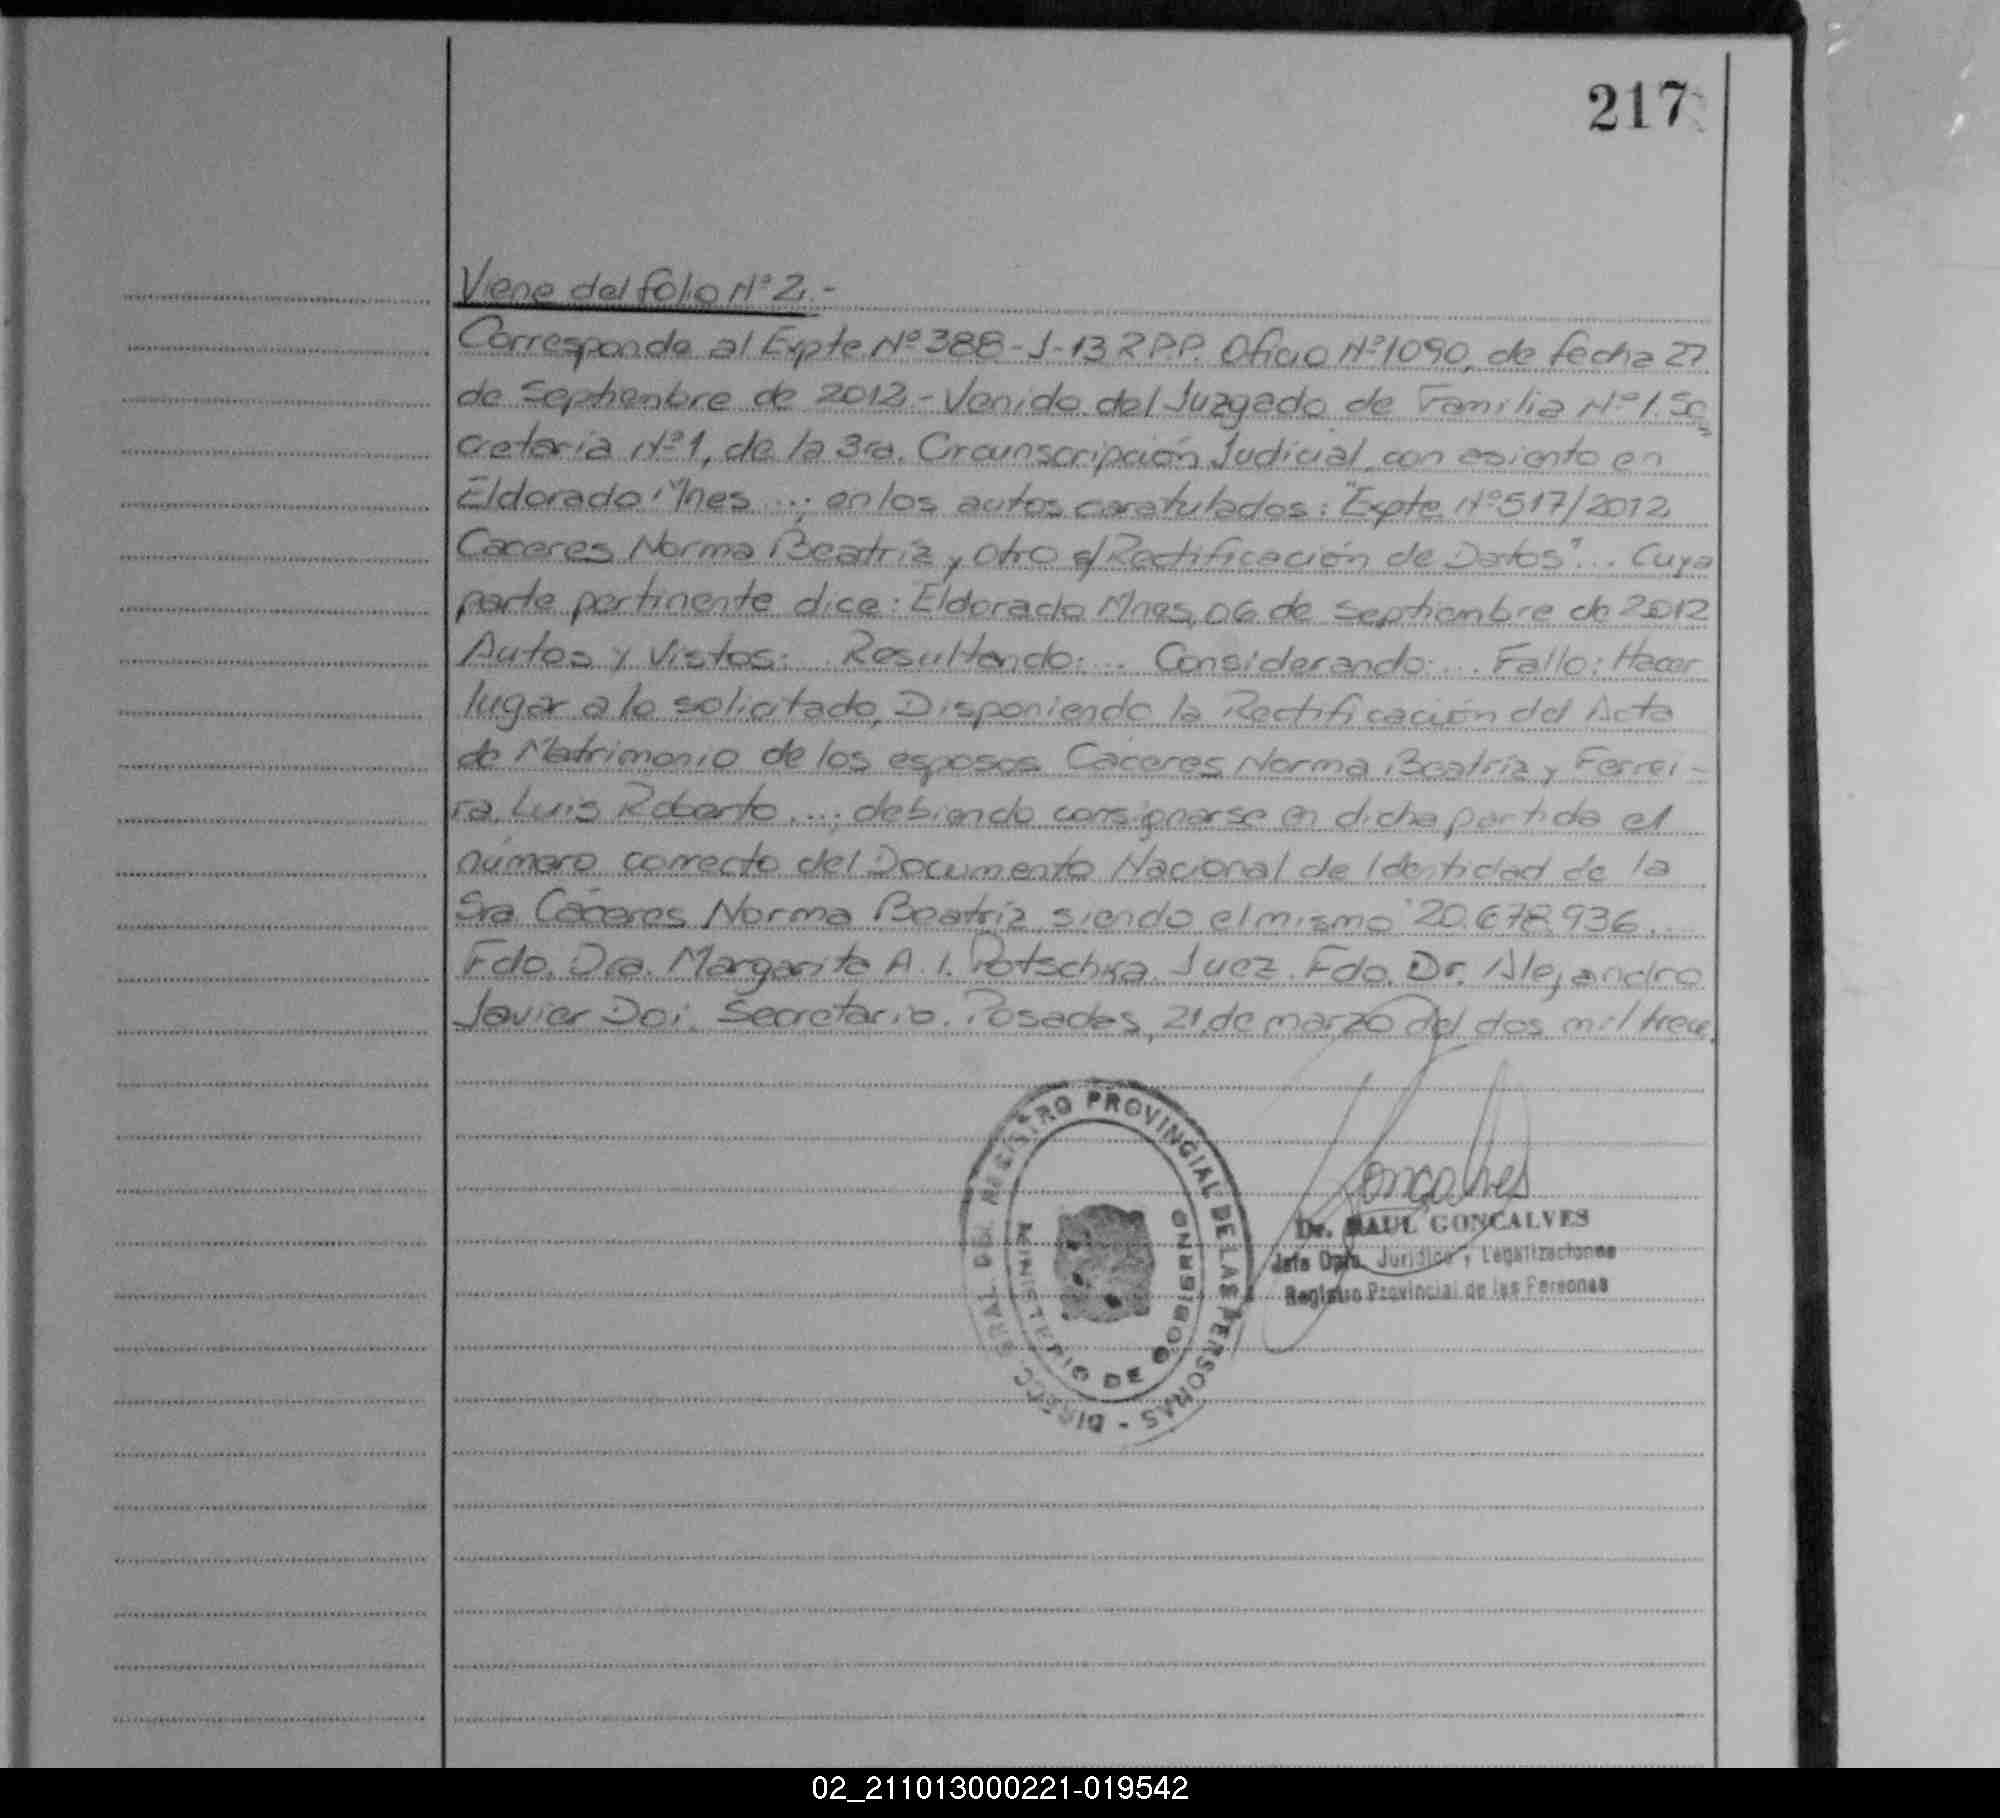 217
Viene del folio Nº 2.-
Corresponde al Expte Nº 388-J-13 R.P.P. Oficio Nº 1090, de fecha 27
de septiembre de 2012.- Venido del Juzgado de Familia Nº 1. Se
cretaria Nº 1, de la 3ra. Circunscripción Judicial, con asiento en
Eldorado Mnes ...; en los autos caratulados: "Expte Nº 517/2012
Caceres Norma Beatriz y otro s/ Rectificación de Datos"... Cuya
parte pertinente dice: Eldorado Mnes, 06 de septiembre de 2012
Autos y Vistos: Resultando:... Considerando:... Fallo: Hacer
lugar a lo solicitado, Disponiendo la Rectificación del Acta
de Matrimonio de los esposos Cáceres Norma Beatriz y Ferrei-
ra Luis Roberto ...; debiendo consignarse en dicha partida el
número correcto del Documento Nacional de Identidad de la
Sra. Cáceres Norma Beatriz siendo el mismo 20.678.936...
Fdo. Dra. Margarita A. I. Potschka. Juez. Fdo. Dr. Alejandro
Javier Doi. Secretario. Posadas, 21 de marzo del dos mil trece.
DIRECC. GRAL. DEL REGISTRO PROVINCIAL DE LAS PERSONAS -
MINISTERIO DE GOBIERNO
Goncalves
Dr. RAUL GONCALVES
Jefe Dpto. Jurídico y Legalizaciones
Registro Provincial de las Personas
02_211013000221-019542